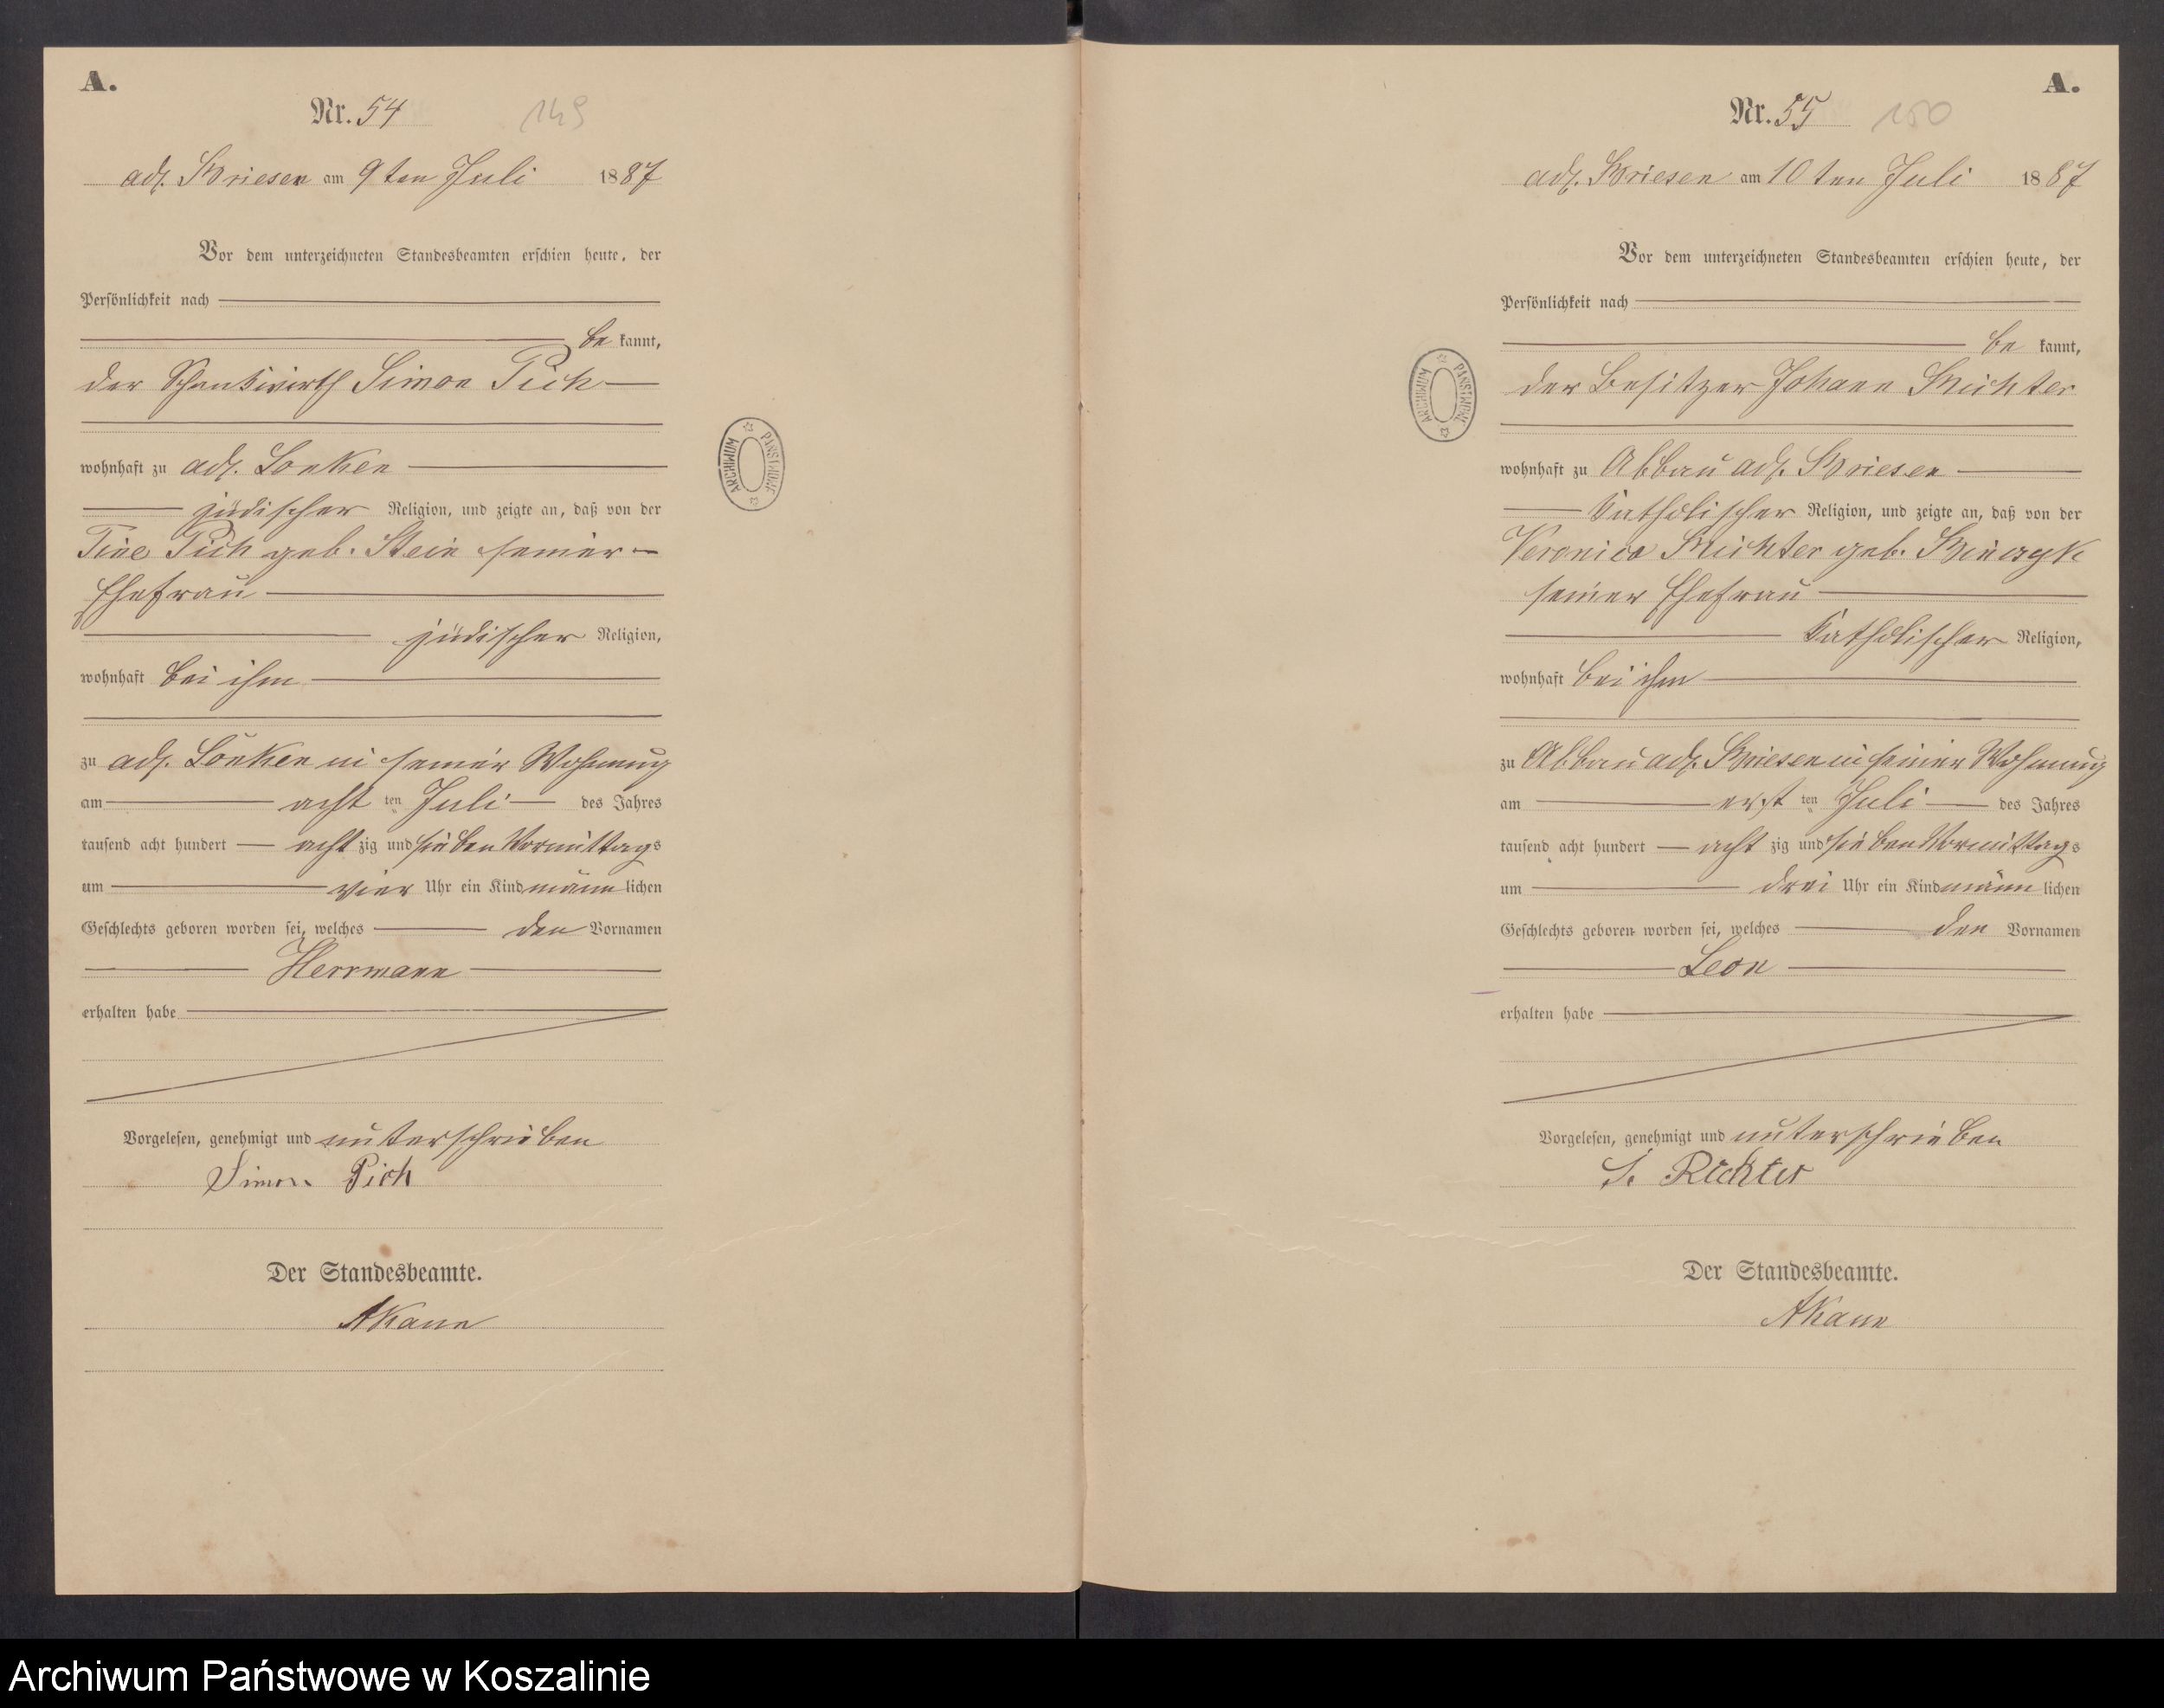 A.
Nr. 54 149
adl. Briesen am 9ten Juli 1887
Vor dem unterzeichneten Standesbeamten erschien heute, der
Persönlichkeit nach
be kannt,
der Schankwirth Simon Pich
wohnhaft zu adl. Lonken
jüdischer Religion, und zeigte an, daß von der
Tine Pich geb. Stein seiner
Ehefrau
jüdischer Religion,
wohnhaft bei ihm
zu adl. Lonken in seiner Wohnung
am acht ten Juli des Jahres
tausend acht hundert acht zig und sieben Vormittags
um vier Uhr ein Kind männ lichen
Geschlechts geboren worden sei, welches den Vornamen
Herrmann
erhalten habe
Vorgelesen, genehmigt und unterschrieben
Simon Pich
Der Standesbeamte.
AKann
ARCHIWUM PAŃSTWOWE
A.
Nr. 55 150
adl. Briesen am 10ten Juli 1887
Vor dem unterzeichneten Standesbeamten erschien heute, der
Persönlichkeit nach
be kannt,
der Besitzer Johann Richter
wohnhaft zu Abbau adl. Briesen
katholischer Religion, und zeigte an, daß von der
Veronica Richter geb.
seiner Ehefrau
katholischer Religion,
wohnhaft bei ihm
zu Abbau adl. Briesen in seiner Wohnung
am erst ten Juli des Jahres
tausend acht hundert acht zig und sieben Vormittags
um drei Uhr ein Kind männ lichen
Geschlechts geboren worden sei, welches den Vornamen
Leon
erhalten habe
Vorgelesen, genehmigt und unterschrieben
J. Richter
Der Standesbeamte.
AKann
ARCHIWUM PAŃSTWOWE
Archiwum Państwowe w Koszalinie